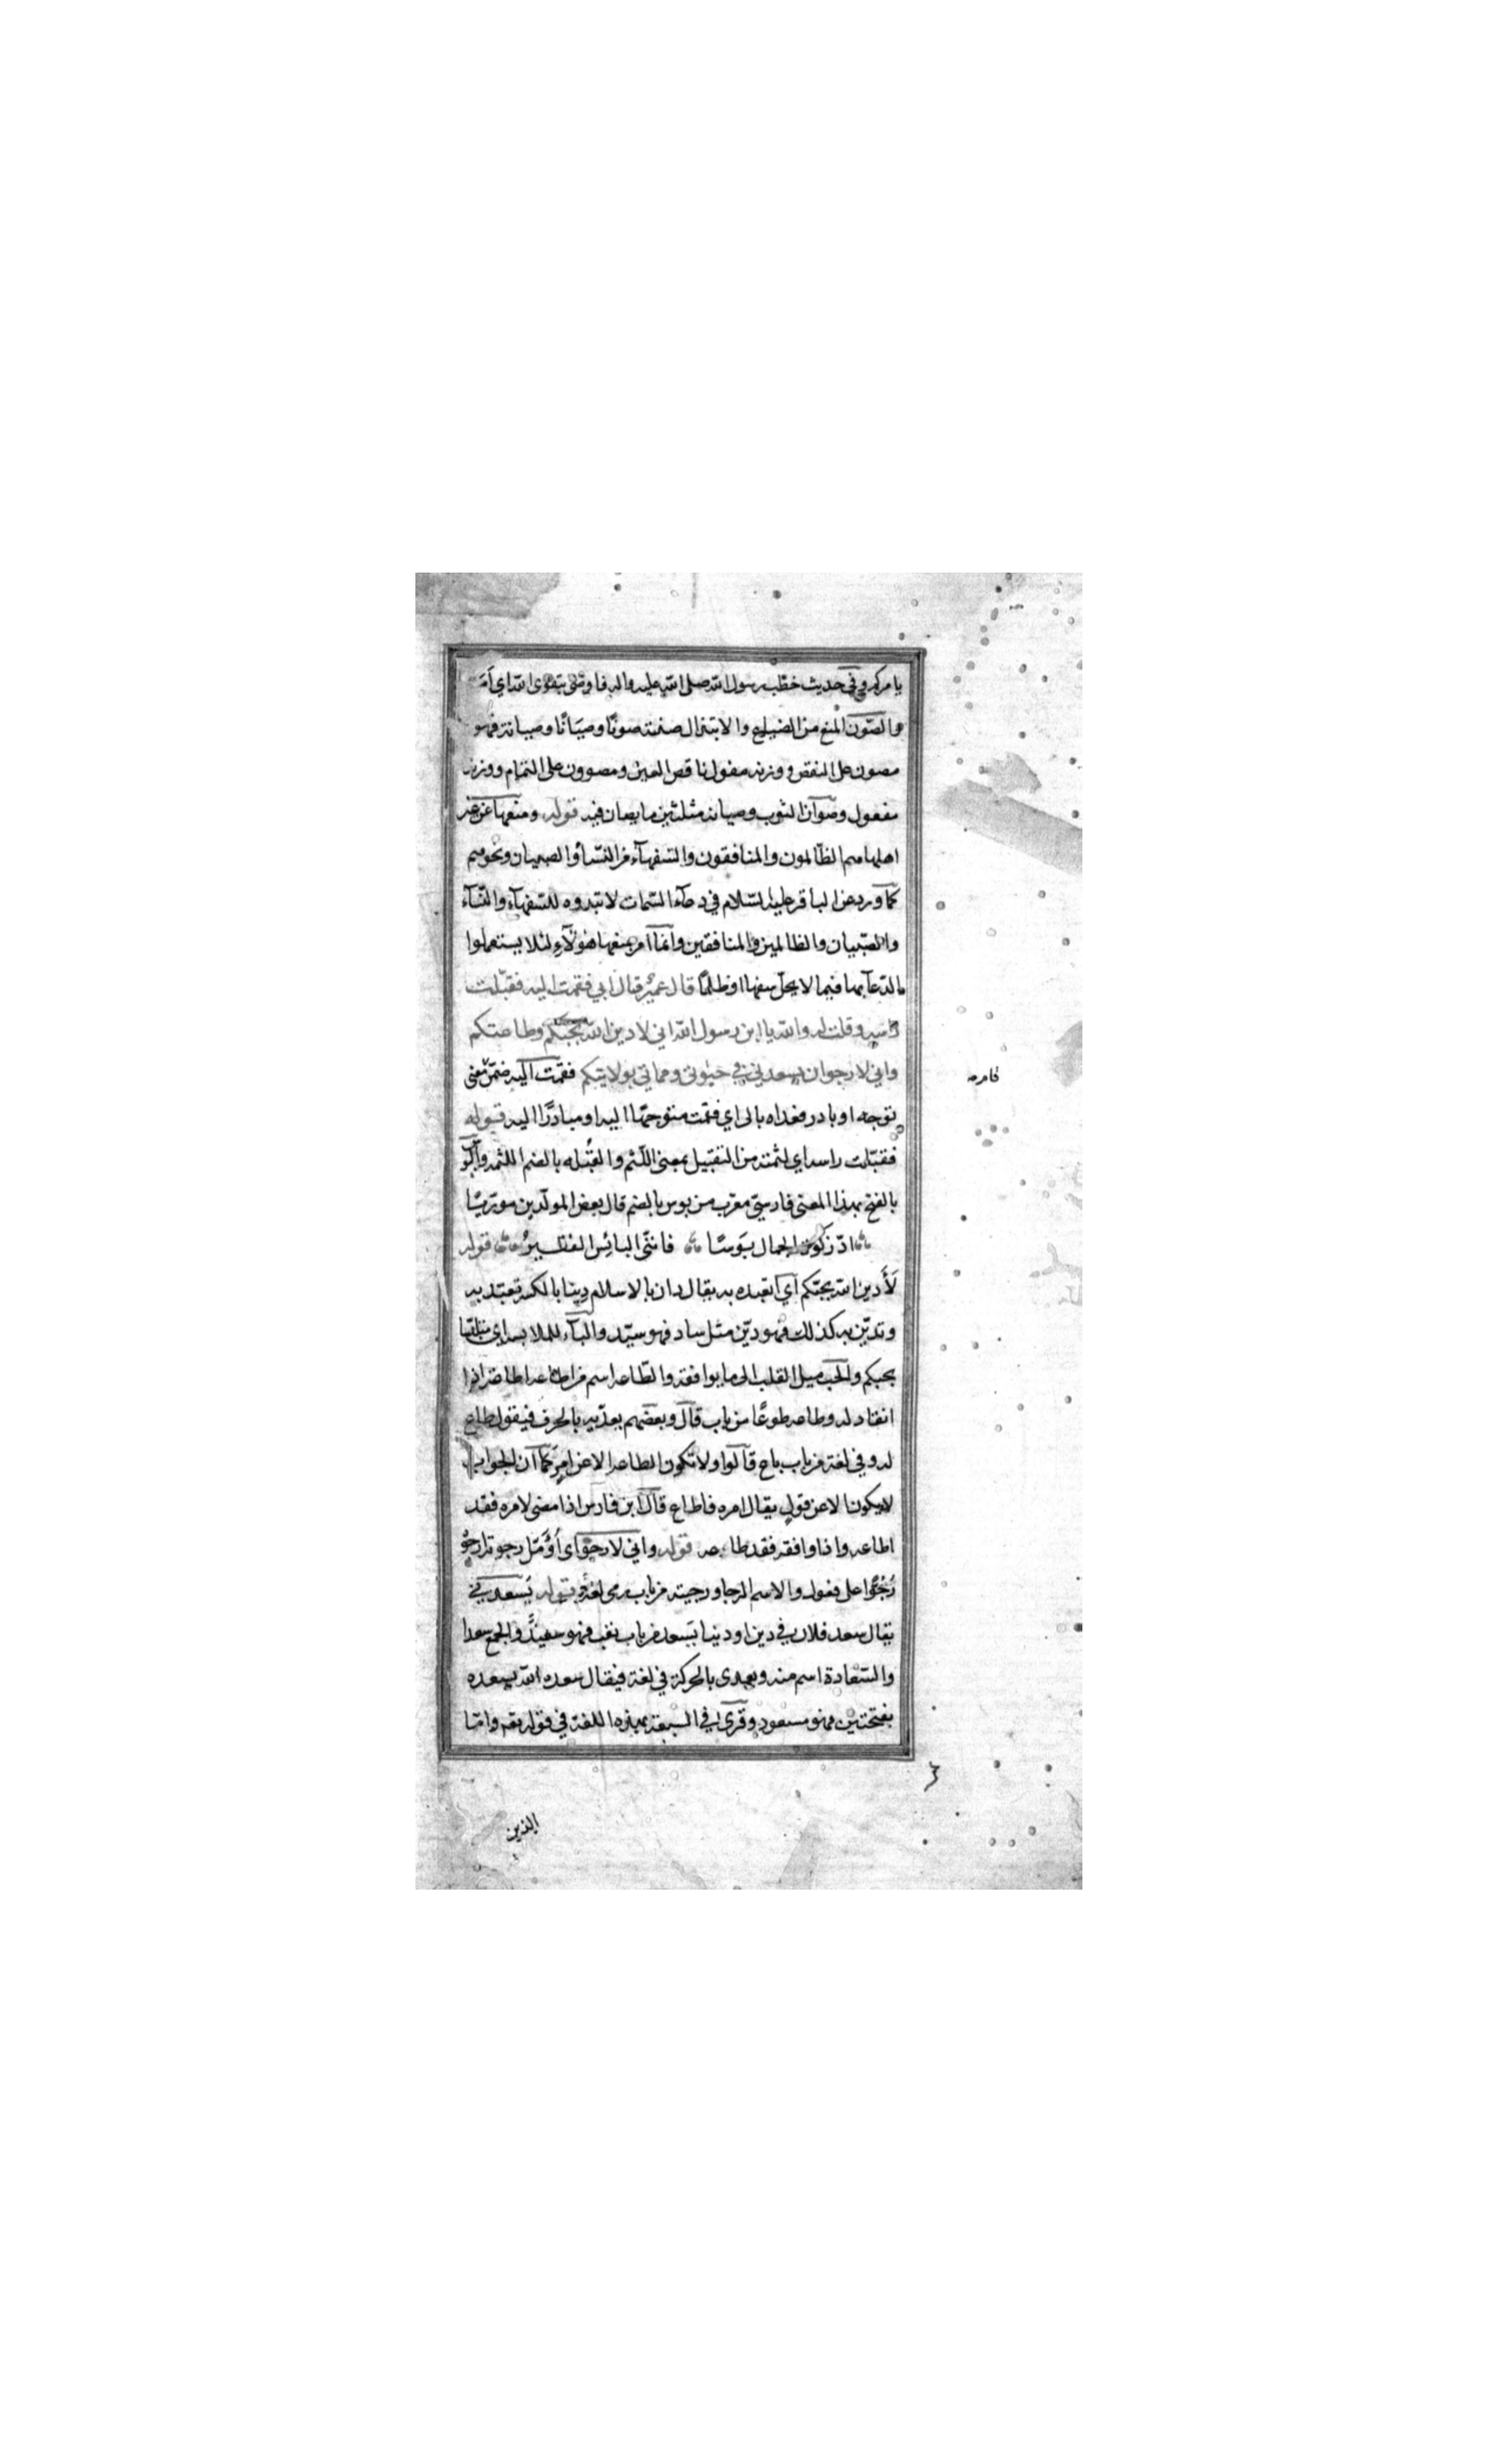 يامركم وفي حديث خطب رسول الله صلى الله عليه واله فاوصى بتقوى الله اي امر
والصون المنع من الضياع والابتذال صنته صونًا وصيانًا وصيانة فهو
مصون على النقص ووزنه مفول ناقص العين ومصوون على التمام ووزنه
مفعول وصوان الثوب وصيانه مثلثين ما يصان فيه قوله ومنعها عن غير
اهلها هم الظالمون والمنافقون والسفهآء من النسآء والصبيان ونحوهم
كما ورد عن الباقر عليه السلام في دعآء السمات لا تبدوه للسفهآء والنسآء
والصبيان والظالمين والمنافقين وانما امر بمنعها هؤلآء لئلا يستعملوا
الدعآ بها فيما لا يحل سفها او ظلمًا قال عمير قال ابي فقمت اليه فقبلت
راسه وقلت له والله يا ابن رسول الله اني لادين الله بحبكم وطاعتكم
واني لارجوان يسعدني في حيوتي ومماتي بولايتكم فقمت اليه ضمن معنى
قامه
توجه او بادر فعداه بالى اي فقمت متوجهًا اليه او مبادرًا اليه قوله
فقبلت راسه اي لثمته من التقبيل بمعنى اللثم والقبله بالضم اللثمه والبوس
بالفتح بهذا المعنى فارسي معرب من بوس بالضم قال بعض المولدين موريًا
الجمال بوسًا فانني البائس الفقير قوله
لأدين الله بحبكم اي اتعبده به يقال دان بالاسلام دينا بالكسر تعبد به
وتدين به كذلك فهو دين مثل ساد فهو سيد والبآء للملابسه اي متلبسًا
بحبكم والحب ميل القلب الى ما يوافقه والطاعه اسم من اطاعه اطاعة اذا
انقاد له وطاعه طوعًا من باب قال وبعضهم يعديه بالحرف فيقول طاع
له وفي لغة من باب باع قالوا ولا تكون الطاعه الا عن امر كما ان الجواب
لا يكون الا عن قول يقال امره فاطاع قال ابن فارس اذا مضى لامره فقد
اطاعه واذا وافقه فقد طاعه قوله واني لارجو اى اؤمل رجوته ارجو
رجوًا على فعول والاسم الرجا ورجيته من باب رمى لغة قوله يسعدني
يقال سعد فلان في دين او دنيا يسعد من باب تعب فهو سعيد والجمع سعدا
والسعادة اسم منه ويعدى بالحركة في لغة فيقال سعده الله يسعده
بفتحتين فهو مسعود وقرئ في السبعة بهذه اللغة في قوله تعه واما
الذين